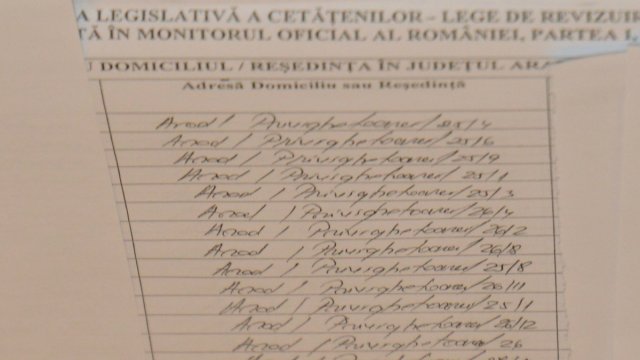 A LEGISLATIVĂ A CETĂȚENILOR - LEGE DE REVIZUIR
TĂ ÎN MONITORUL OFICIAL AL ROMÂNIEI, PARTEA I,
U DOMICILIUL / REȘEDINȚA ÎN JUDEȚUL ARA
Adresă Domiciliu sau Reședință
Arad / Privighetoarei / 25/4
Arad / Privighetoarei / 25/6
Arad / Privighetoarei / 25/9
Arad / Privighetoarei / 25/1
Arad / Privighetoarei / 25/3
Arad / Privighetoarei / 26/4
Arad / Privighetoarei / 26/2
Arad / Privighetoarei / 26/8
Arad / Privighetoarei / 25/8
Arad / Privighetoarei / 26/11
Arad / Privighetoarei / 25/1
Arad / Privighetoarei / 26/12
Arad / Privighetoarei / 26